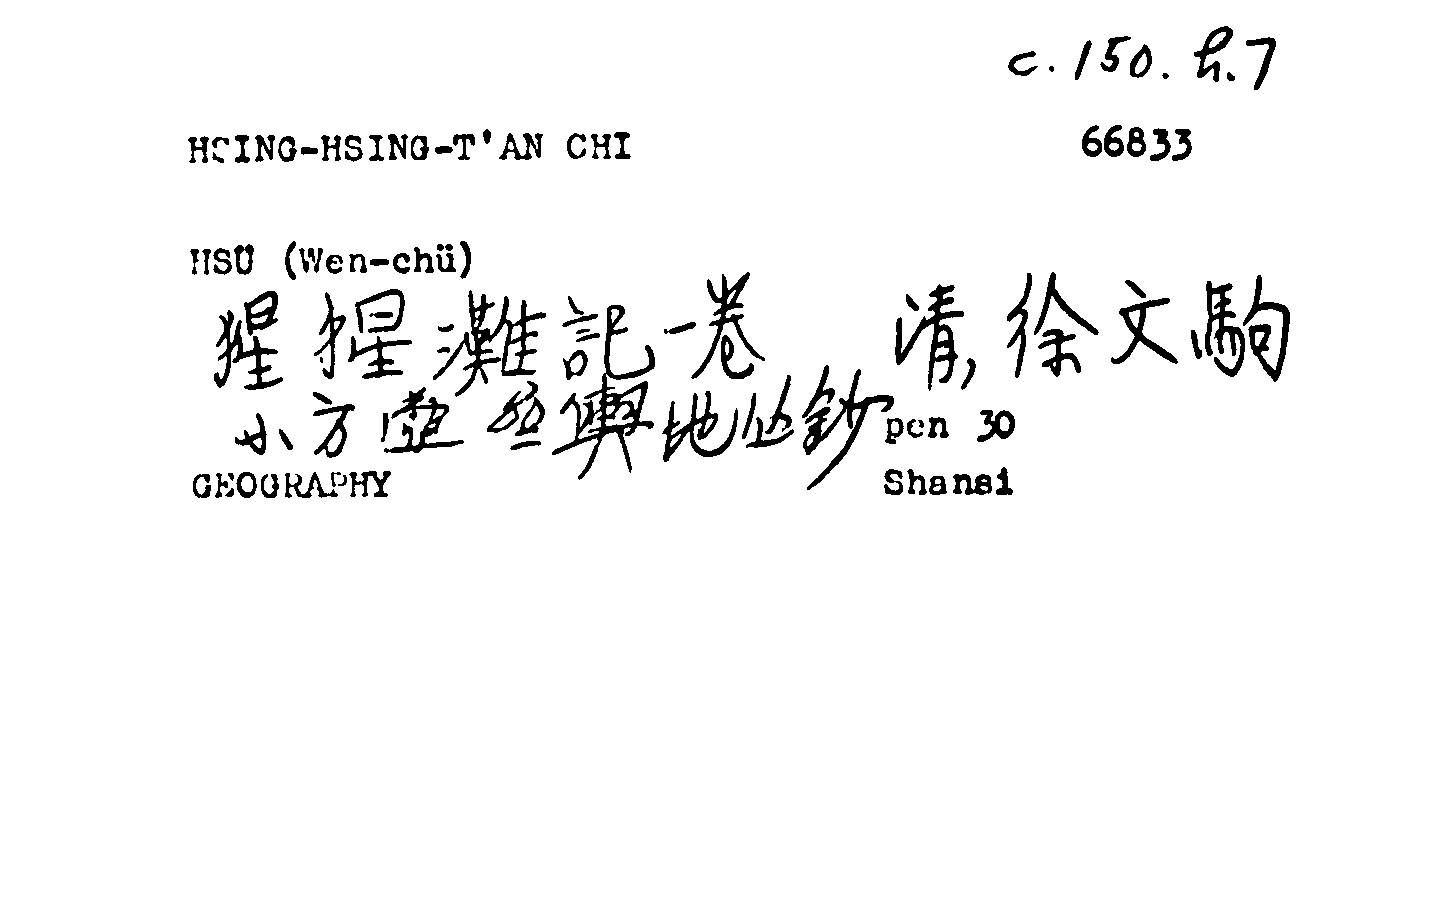 c.150.h.7
HSING-HSING-T'AN CHI 66833
HSÜ (Wen-chü)
猩猩灘記一卷 清,徐文駒
小方壺齋輿地丛鈔 pen 30
GEOGRAPHY Shansi